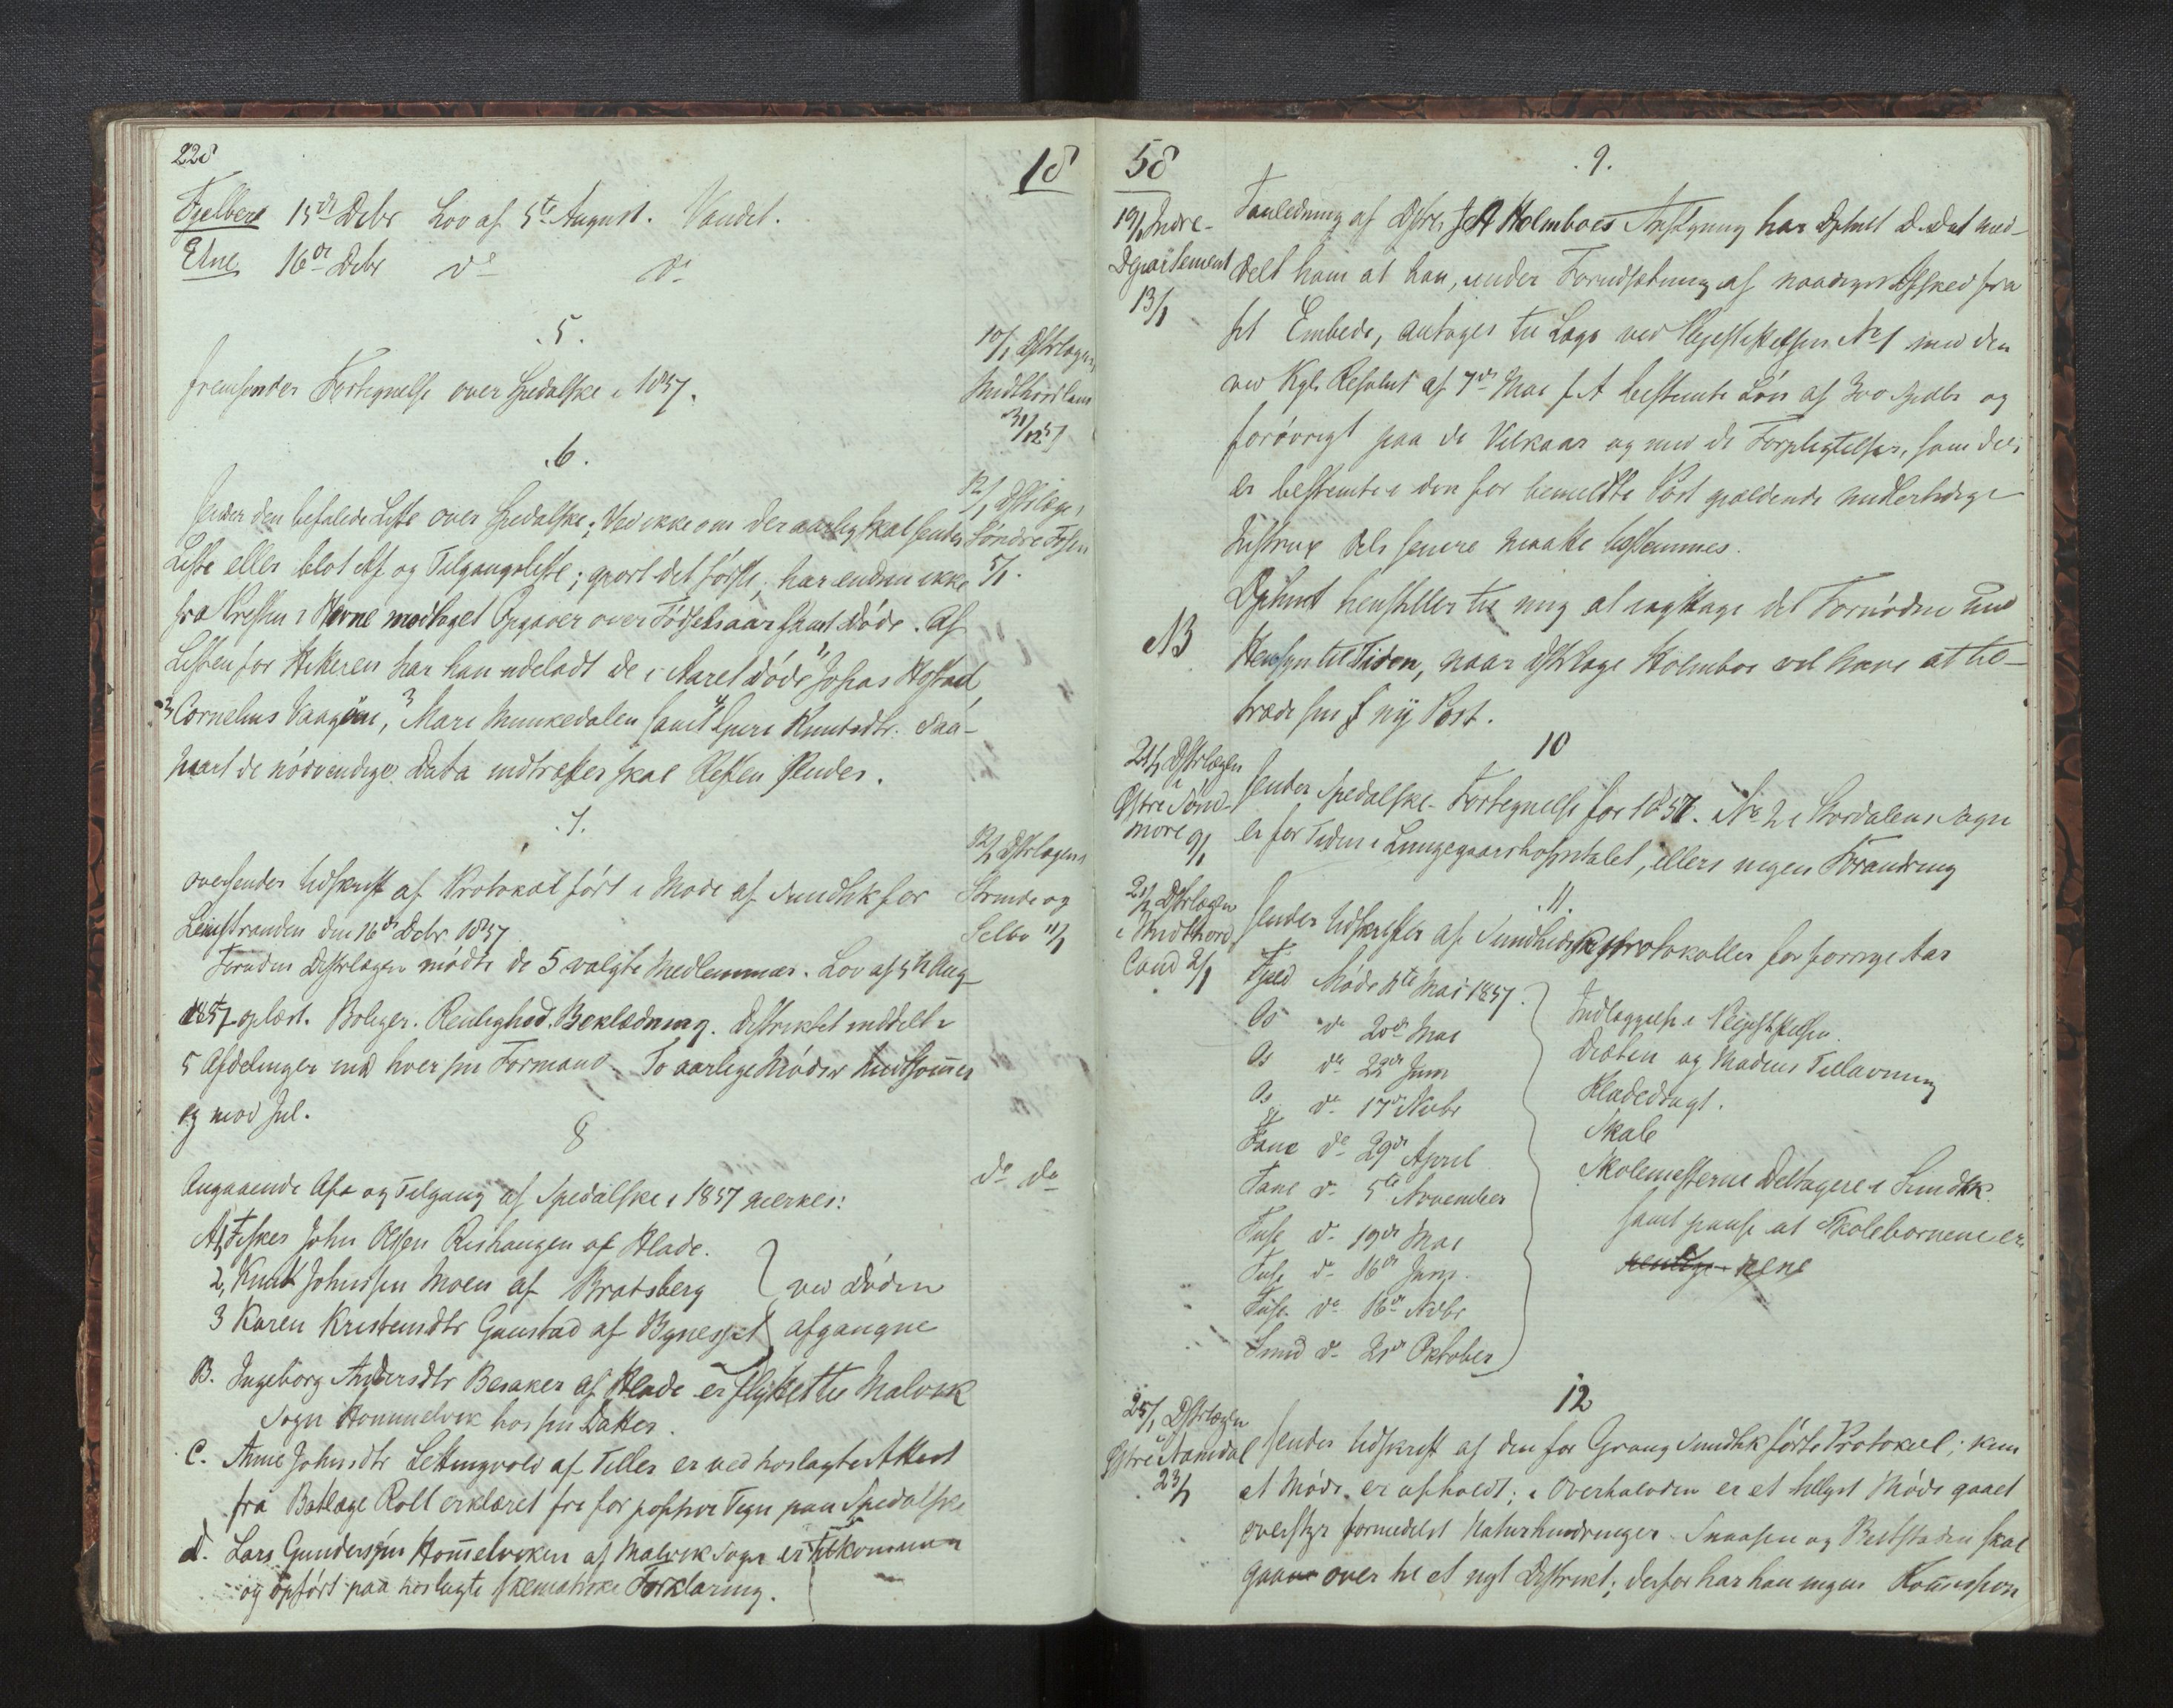 228
18
Fjelberg 15de Debr Lov af 5te August. Vandet.
Etne 16de Debr do do
.5.
10/1 Dstrlægen
Midthordland
31/12 57
fremsender Fortegnelse over Spedalske i 1857.
.6.
12/1 Dstrlæge i
Søndre Fosen
5/1.
sender den befalede Liste over Spedalske; Ved ikke om der aarlig skal sendes
Liste eller blot Af og Tilgangsliste; gjort det første; har endnu ikke
fra Presten i Hevne modtaget Opgaver over Fødselsaar samt Døde. Af
Listen for har han udeladt de i Aaret døde 1, Johas Hofstad,
2 Cornelius Vaagøen, 3 Mari Munkedalen samt 4 Knutsdtr. Saa-
snart de nødvendige Data indtræffer skal Resten sendes.
.7.
12/1 Dstrlægen i
Strinde og
Selbo 11/1
oversender Udskrift af Protokol ført i Møde af Sundhk for
Leinstranden den 16de Debr 1857
Foruden Distrlægen mødte de 5 valgte Medlemmer. Lov af 5te Aug
1857 oplæst. Boliger. Renlighed. Beklædning. Distriktet inddelt i
5 Afdelinger med hver sin Formand. To aarlige Møder Midtsommer
og mod Jul.
8
do do
Angaaende Af- og Tilgang af Spedalske i 1857 mærkes:
A, 1, Fisker John Olsen Rishaugen af Hlade.
2, Knut Johnsen Moen af Bratsberg } ved Døden
3 Karen Kristensdtr Gaustad af Bynesset } afgangne
B. Ingeborg Andersdtr Besaker af Hlade er flyttet til Malvik
Sogn Hommelvik hos sin Datter.
C. Anne Johnsdtr af Tiller er ved hoslagte Attest
fra Batlæge Roll erklæret fri for Tegn paa Spedalske
D. Lars Gundersen Homelviken af Malvik Sogn er tilkommen
og opført paa hoslagte skematiske Forklaring.
58
.9.
19/1 Indre-
Departement
13/1
I anledning af Dstrl. J A Holmboes Ansøgning har Dptmt D. Dat med-
delt ham at han, under Forudsætning af naadigst Afsked fra
sit Embede, antages til Læge ved Plejestiftelsen No 1 med den
ved Kgl. Resolut af 7de Mai f A bestemte Løn af 300 Spdlr og
forøvrigt paa de Vilkaar og med de Forpligtelser, som dels
er bestemte i den for bemeldte Post gjældende midlertidige
Instrux dels senere maatte bestemmes.
NB
Dptmt henstiller til mig at iagttage det Fornødne med
Hensyn til Tiden, naar Dstrlæge Holmboe vil have at til-
træde sin ny Post.
10
21/1 Dstrlægen
i
Østre Sønd-
møre 9/1
sender Spedalske-Fortegnelse for 1857. No 2 i Nordalens Sogn
er for Tiden i Lungegaardshospitalet, ellers ingen Forandring
.11.
21/1 Dstrlægen
i Midthord
land 2/1
sender Udskrifter af Sundhedskprotokoller for forrige Aar
Fjeld Møde 11te Mai 1857.
Os do 20de Mai
Os do 22de Juni
Os do 17de Nvbr
Fane do 29de April
Fane do 5te November
Fuse do 19de Mai
Fuse do 16de Juni.
Fuse do 16de Nvbr
Sund do 21de Oktober
Indlæggelse i Plejestiftelsen.
Diæten og Madens Tillavning
Klædedragt.
Skab
Skolemesterne Deltagere i Sundhk.
samt paase at Skolebørnene ere
renlige rene
12
25/1 Dstrlægen
i
Østre Namdal
23/1
sender Udskrift af den for Grong Sundhk førte Protokol; kun
et Møde er afholdt; i Overhalvden er et tillyst Møde gaaet
overstyr formedelst Naturhindringer. Snaasen og Beitstaden skal
gaa over til et nyt Distrikt; derfor har han ingen Komission